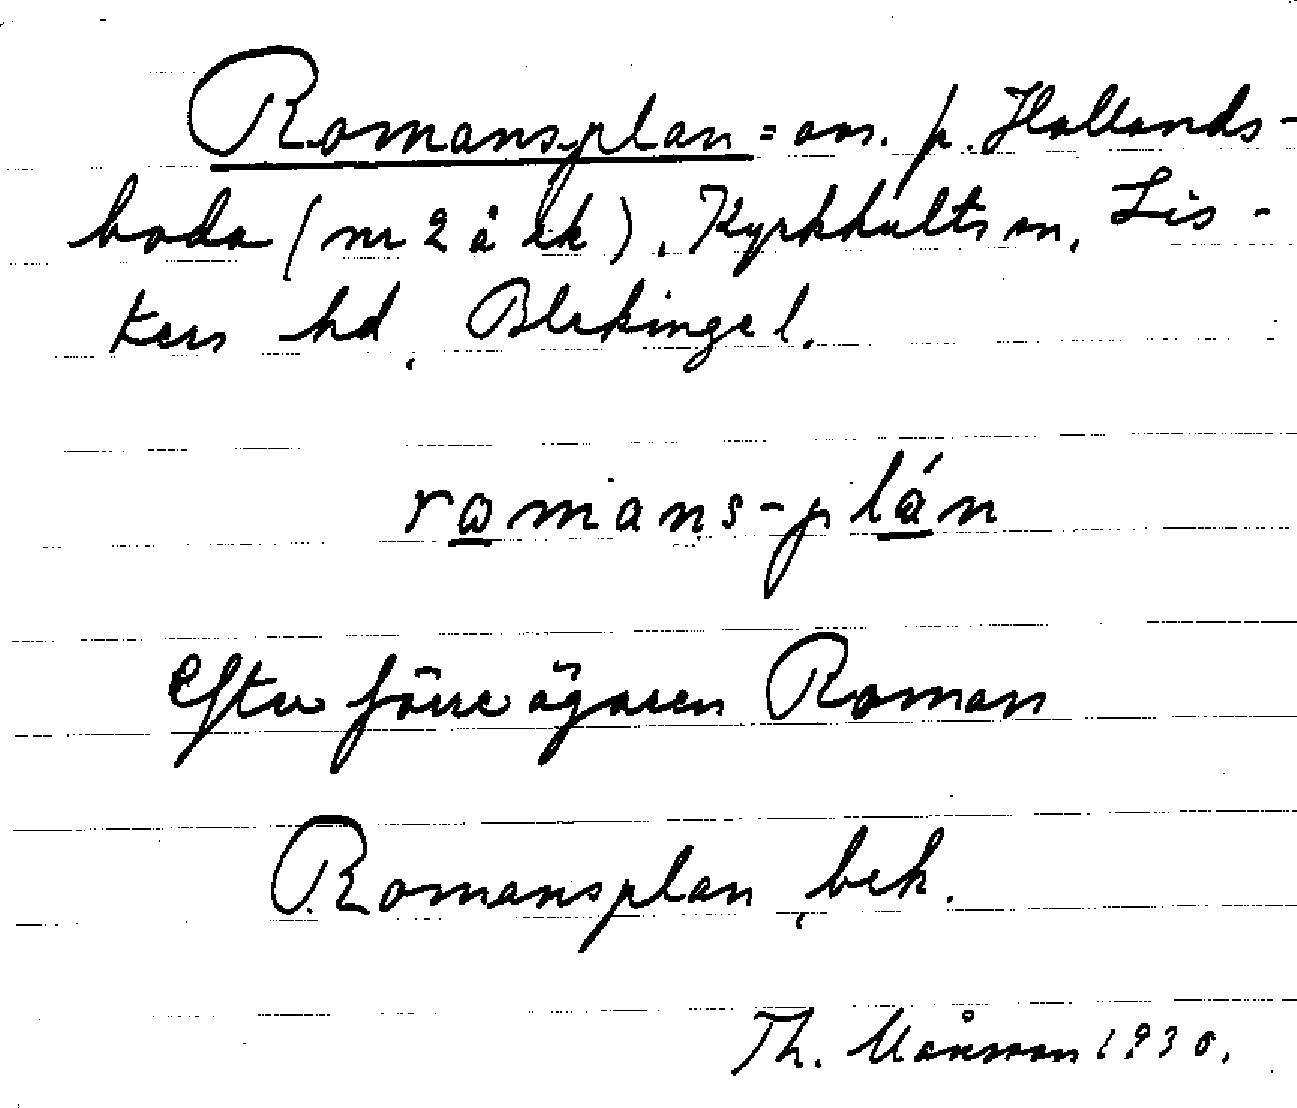 Romansplan = om. p. Hallands-
boda (nr 2 å ek), Kyrkhults sn, Lis-
ters hd, Blekinge l.
romans-plán
Efter förre ägaren Roman
Romansplan, bek.
Th. Månsson 1930.